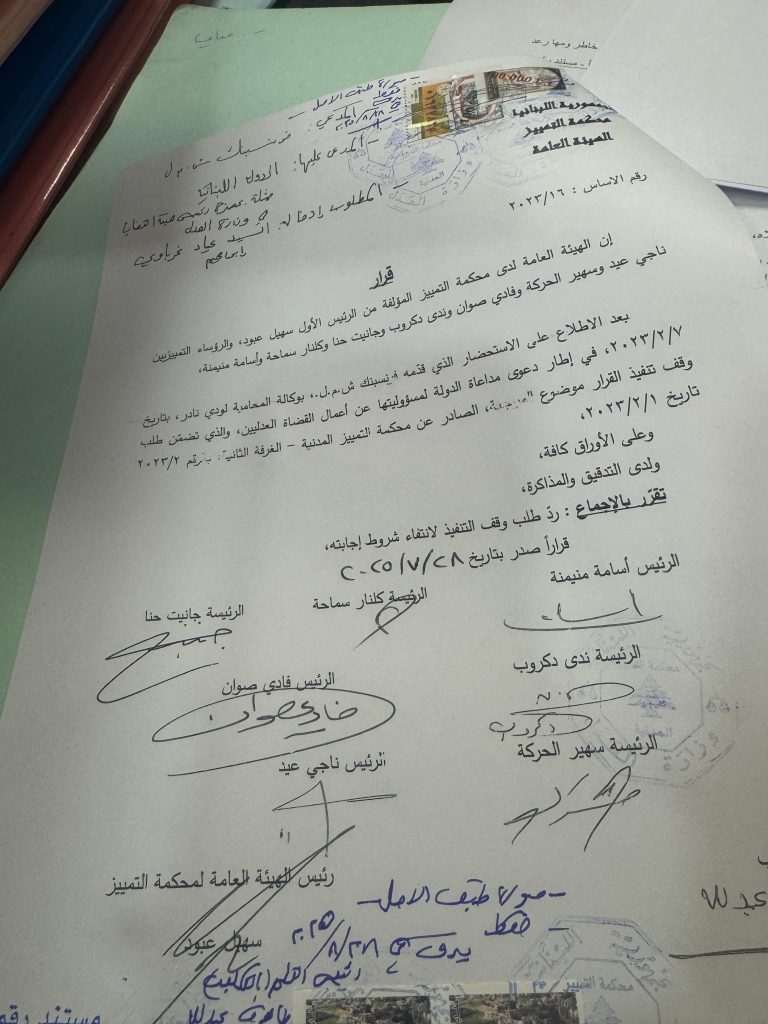 خاطر وسها رعد
أ - مستند
الجمهورية اللبنانية
محكمة التمييز
الهيئة العامة
صورة طبق الاصل
فقط
المدعي: فرنسبنك ش.م.ل
المدعى عليها: الدولة اللبنانية
ممثلة بشخص رئيس هيئة القضايا
في وزارة العدل
المطلوب ادخاله: السيد عياد غرباوي
ابراهيم
رقم الاساس : ٢٠٢٣/١٦
قرار
إن الهيئة العامة لدى محكمة التمييز المؤلفة من الرئيس الأول سهيل عبود، والرؤساء التمييزيين
ناجي عيد وسهير الحركة وفادي صوان وندى دكروب وجانيت حنا وكلنار سماحة وأسامة منيمنة،
بعد الاطلاع على الاستحضار الذي قدّمه فرنسبنك ش.م.ل.، بوكالة المحامية لودي نادر، بتاريخ
٢٠٢٣/٢/٧، في إطار دعوى مداعاة الدولة لمسؤوليتها عن أعمال القضاة العدليين، والذي تضمّن طلب
وقف تنفيذ القرار موضوع المراجعة، الصادر عن محكمة التمييز المدنية – الغرفة الثانية، بالرقم ٢٠٢٣/٢
تاريخ ٢٠٢٣/٢/١،
وعلى الأوراق كافة،
ولدى التدقيق والمذاكرة،
تقرّر بالإجماع : ردّ طلب وقف التنفيذ لانتفاء شروط إجابته،
قراراً صدر بتاريخ ٢٠٢٥/٧/٢٨
الرئيس أسامة منيمنة
الرئيسة كلنار سماحة
الرئيسة جانيت حنا
الرئيسة ندى دكروب
الرئيس فادي صوان
فادي صوان
الرئيسة سهير الحركة
الرئيس ناجي عيد
رئيس الهيئة العامة لمحكمة التمييز
سهيل عبود
صورة طبق الاصل
فقط
رئيس القلم
محكمة التمييز
مستند رقم